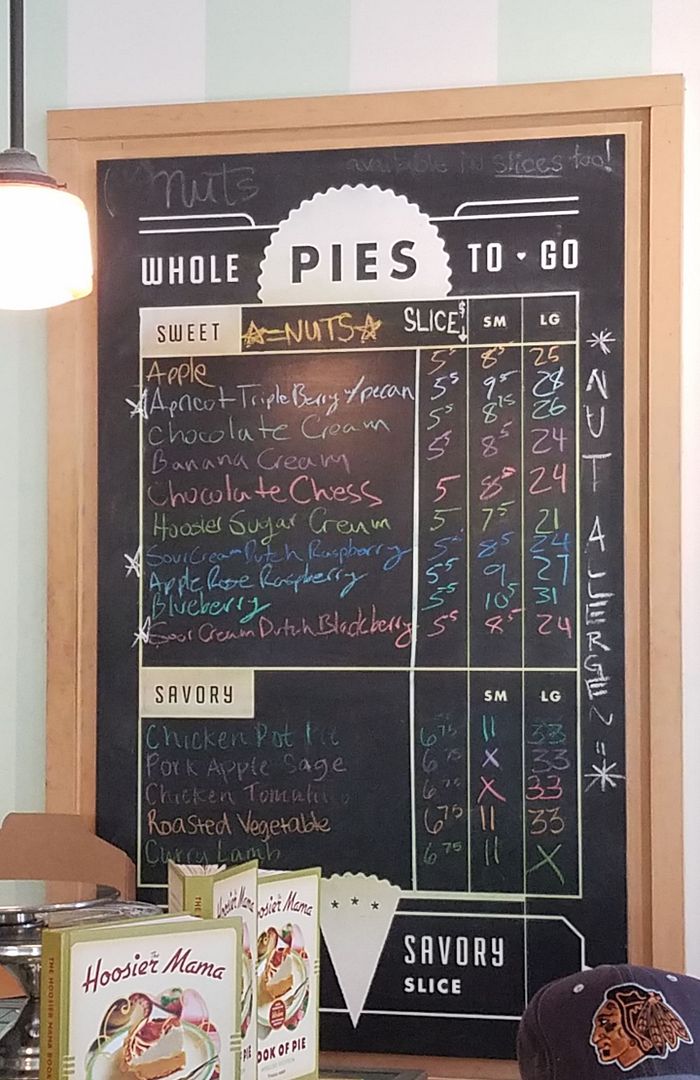 nuts available in slices too!
WHOLE PIES TO ♥ GO
SWEET ☆=NUTS☆ SLICE $↓ SM LG
Apple 5⁵ 8⁵ 25
Apricot Triple Berry w/pecan 5⁵ 9⁵ 28
Chocolate Cream 5⁵ 8⁷⁵ 26
Banana Cream 5⁵ 8⁵ 24
Chocolate Chess 5 8⁵⁰ 24
Hoosier Sugar Cream 5 7⁵ 21
☆ Sour Cream Dutch Raspberry 5⁵ 8⁵ 24
Apple Rose Raspberry 5⁵ 9 27
Blueberry 5⁵ 10⁵ 31
☆ Sour Cream Dutch Blackberry 5⁵ 8⁵ 24
* NUT ALERGEN = *
SAVORY SM LG
Chicken Pot Pie 6⁷⁵ 11 33
Pork Apple Sage 6⁷⁵ X 33
Chicken 6⁷⁵ X 33
Roasted Vegetable 6⁷⁵ 11 33
Curry Lamb 6⁷⁵ 11 X
SAVORY
SLICE
The Hoosier Mama
Hoosier Mama
oosier Mama
THE HOOSIER MAMA BOOK
PIE
OOK OF PIE